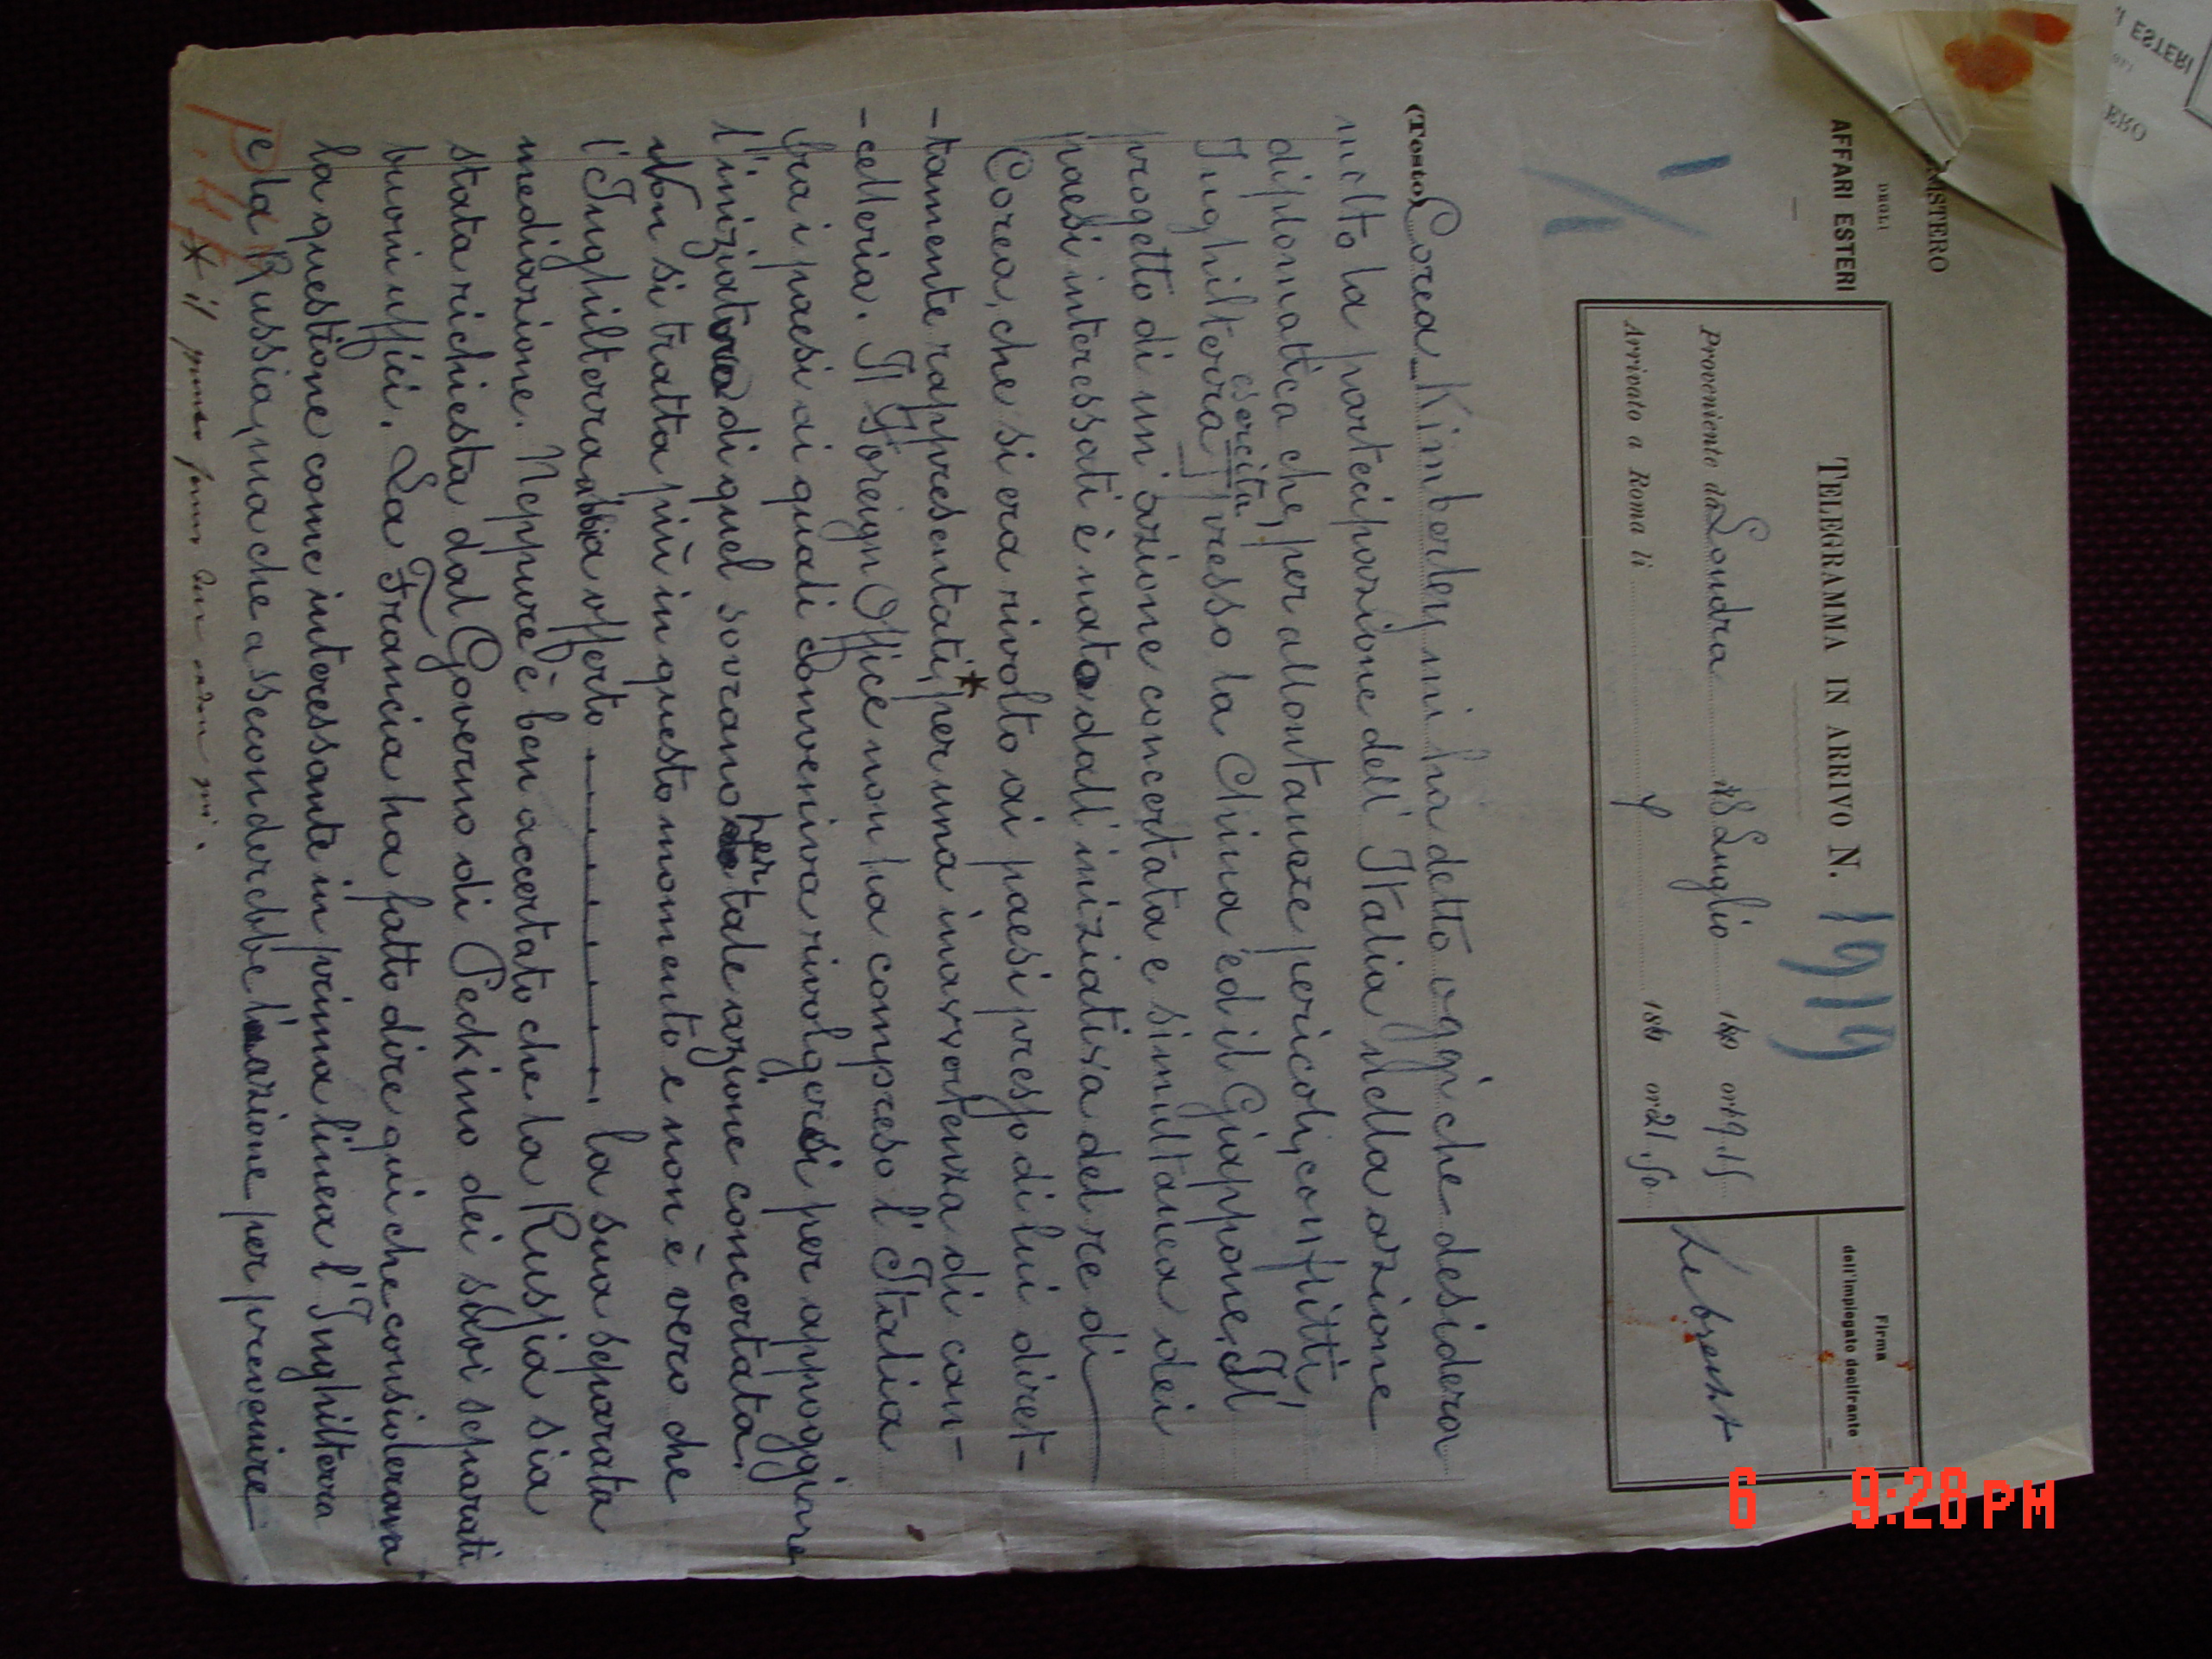 MINISTERO
DEGLI
AFFARI ESTERI
TELEGRAMMA IN ARRIVO N. 1919
Proveniente da Londra 18 Luglio 189 or 19.15
Arrivato a Roma li 189 or 21.50
Firma
dell'impiegato decifrante
(Testo) Corea - Kimberley mi ha detto oggi che desidera
molto la partecipazione dell'Italia nella azione
diplomatica che, per allontanare pericoli, conflitti,
esercita
Inghilterra presso la Cina ed il Giappone. Il
progetto di un'azione concertata e simultanea dei
paesi interessati è nato dall'iniziativa del re di
Corea, che si era rivolto ai paesi presso di lui diret-
-tamente rappresentati,* per una inavvertenza di can-
-celleria. Il Foreign Office non ha compreso l'Italia
fra i paesi ai quali conveniva rivolgersi per appoggiare
per
l'iniziativa di quel sovrano tale azione concertata.
Non si tratta più in questo momento e non è vero che
l'Inghilterra abbia offerto la sua separata
mediazione. Neppure è ben accertato che la Russia sia
stata richiesta dal Governo di Peckino dei suoi separati
buoni uffici. La Francia ha fatto dire qui che considerava
la questione come interessante in prima linea l'Inghilterra
e la Russia, ma che asseconderebbe l'azione per prevenire
* il
9:28 PM
6
ESTERI
ERO